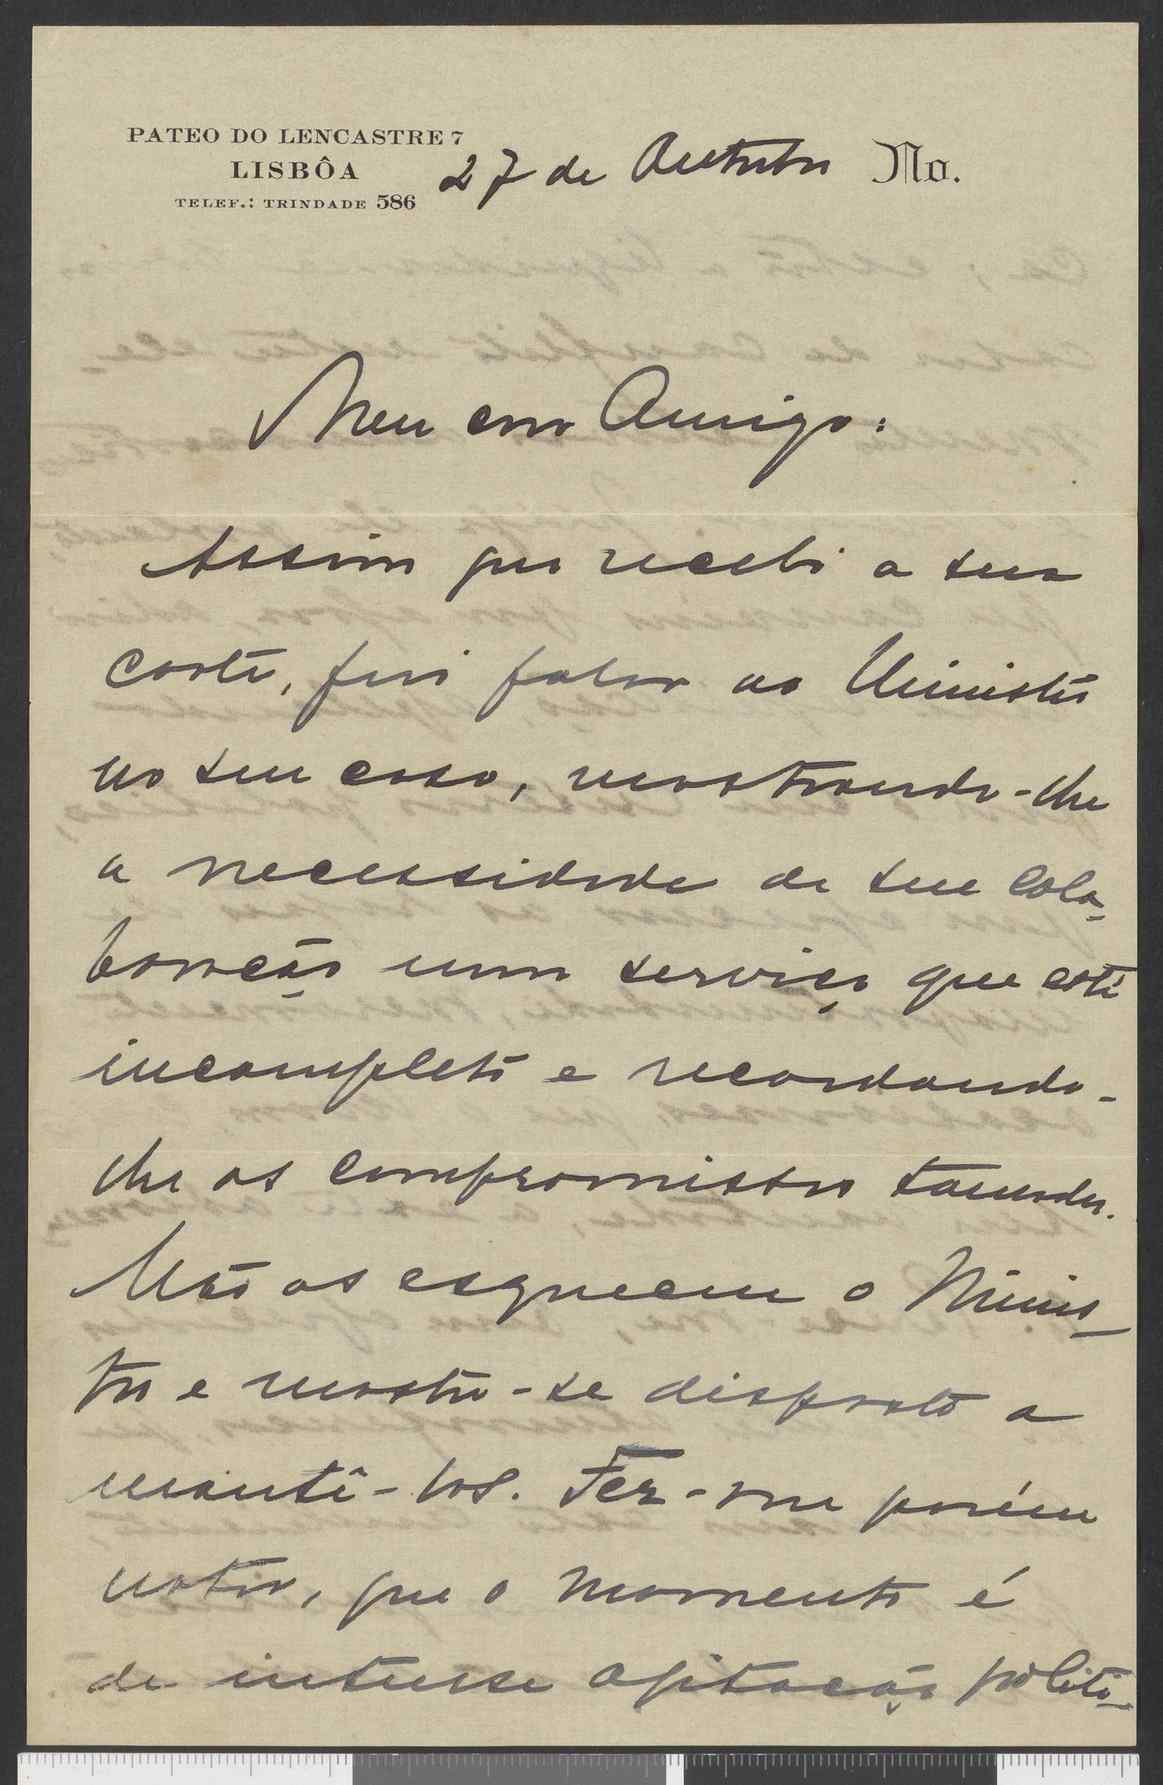 PATEO DO LENCASTRE 7
LISBÔA
TELEF.: TRINDADE 586
27 de Outubro No.
Meu caro Amigo:
Assim que recebi a sua
carta, fui falar ao Ministro
no seu caso, mostrando-lhe
a necessidade de sua cola-
boração num serviço que está
incompleto e recordando-
lhe os compromissos tomados.
Não os esqueceu o Minis-
tro e mostra-se disposto a
mantê-los. Fez-me porém
notar, que o momento é
de intensa agitação politi-